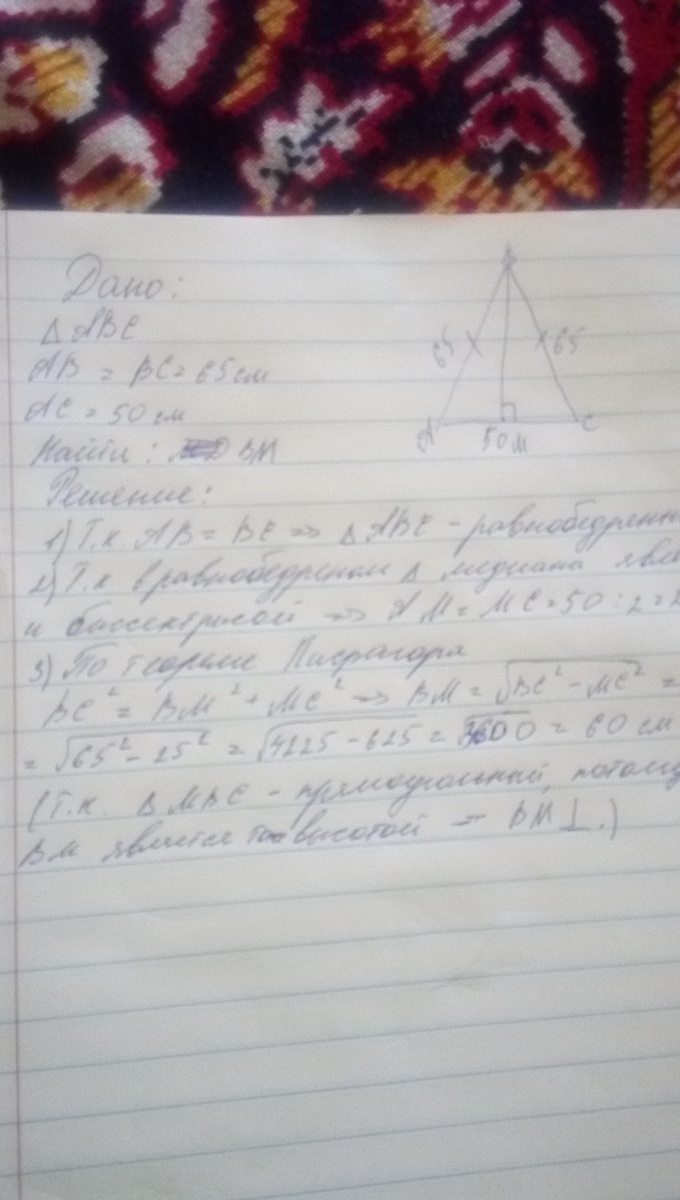 Дано:
△ ABC
AB = BC = 65 см
AC = 50 см
Найти: BM
Решение:
1) Т.к. AB = BC => △ ABC - равнобедренн
2) Т.к в равнобедреном △ медиана явл
и биссектрисой => AM = MC = 50 : 2 = 2
3) По теореме Пифагора
BC² = BM² + MC² => BM = √BC² - MC² =
= √65² - 25² = √4225 - 625 = √3600 = 60 см
(Т.к. △ MBC - прямоугольный, потому
BM является высотой - BM ⊥.)
65
65
A
C
50 м